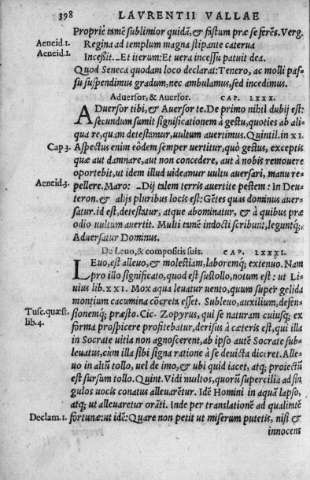 398 LAVRENTII VALLAE
Propriè tamē sublimior quidā, & fastum præ se ferēs. Verg.
Aeneid.1. Regina ad templum magna stipante caterua
Aeneid.1. Incessit.. Et iterum: Et uera incessu patuit dea.
Quod Seneca quodam loco declarat: Tenero, ac molli pas/
su suspendimus gradum, nec ambulamus, sed incedimus.
Aduersor, & Auersor. CAP. LXXX.
ADuersor tibi, & Auersor te. De primo nihil dubij est:
secundum sumit significationem à gestu, quoties ab ali/
qua re, quam detestamur, uultum auertimus. Quintil. in XI.
Cap 3. Aspectus enim eōdem semper uertitur, quò gestus, exceptis
quæ aut damnare, aut non concedere, aut à nobis remouere
oportebit, ut idem illud uideamur uultu auersari, manu re/
Aeneid.3. pellere. Maro: .. Dij talem terris auertite pestem: In Deu/
teron. & alijs pluribus locis est: Gētes quas dominus auer/
satur. id est, detestatur, atque abominatur, & à quibus præ
odio uultum auertit. Multi tamē indocti scribunt, leguntq;,
Aduersatur Dominus.
De Leuo, & compositis suis. CAP. LXXXI.
LEuo, est alleuo, & molestiam, laboremq; extenuo. Nam
pro illo significato, quod est sustollo, notum est: ut Li/
uius lib. XXI. Mox aqua leuatur uento, quum super gelida
montium cacumina cōcreta esset. Subleuo, auxilium, defen/
Tusc.quæst. sionemq; præsto. Cic. Zopyrus, qui se naturam cuiusq; ex
lib.4. forma prospicere profitebatur, derisus à cæteris est, qui illa
in Socrate uitia non agnoscerent, ab ipso autē Socrate sub/
leuatus, cùm illa sibi signa ratione à se deuicta diceret. Alle/
uo in altū tollo, uel de imo, & ubi quid iacet, atq; proiectū
est sursum tollo. Quint. Vidi multos, quorū supercilia ad sin
gulos uocis conatus alleuarētur. Idē Homini in aqua lapso,
atq; ut alleuaretur orāti. Inde per translationē ad qualitatē
Declam.1. fortunæ: ut idē: Quare non petit ut miserum putetis, nisi &
innocens